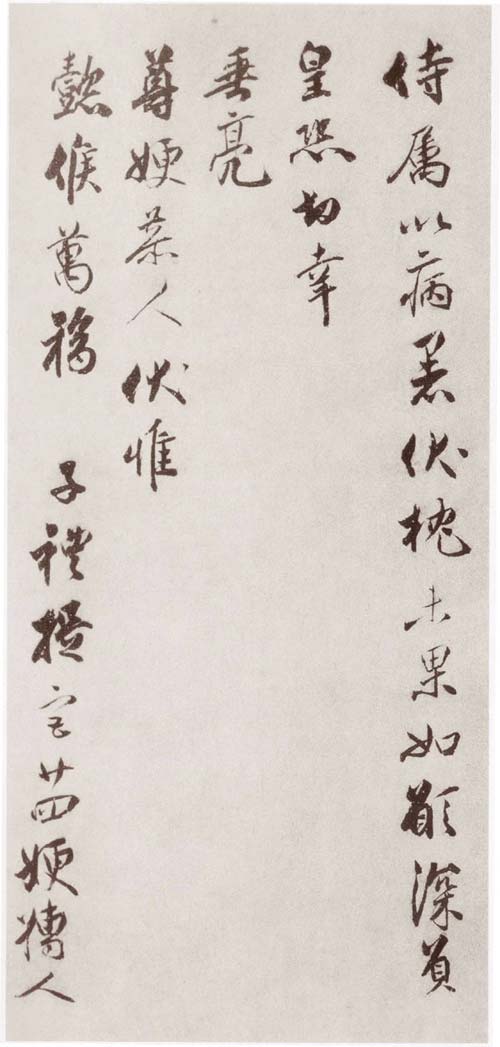 侍属以病暑伏枕未果如願深負
皇恐切幸
垂亮
尊嫂恭人伏惟
懿候萬福 子禮提宮廿四嫂孺人